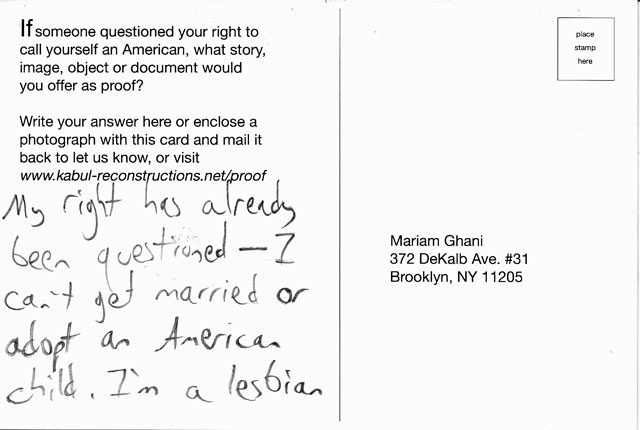 If someone questioned your right to
call yourself an American, what story,
image, object or document would
you offer as proof?
Write your answer here or enclose a
photograph with this card and mail it
back to let us know, or visit
www.kabul-reconstructions.net/proof
My right has already
been questioned — I
can't get married or
adopt an American
child. I'm a lesbian
place
stamp
here
Mariam Ghani
372 DeKalb Ave. #31
Brooklyn, NY 11205